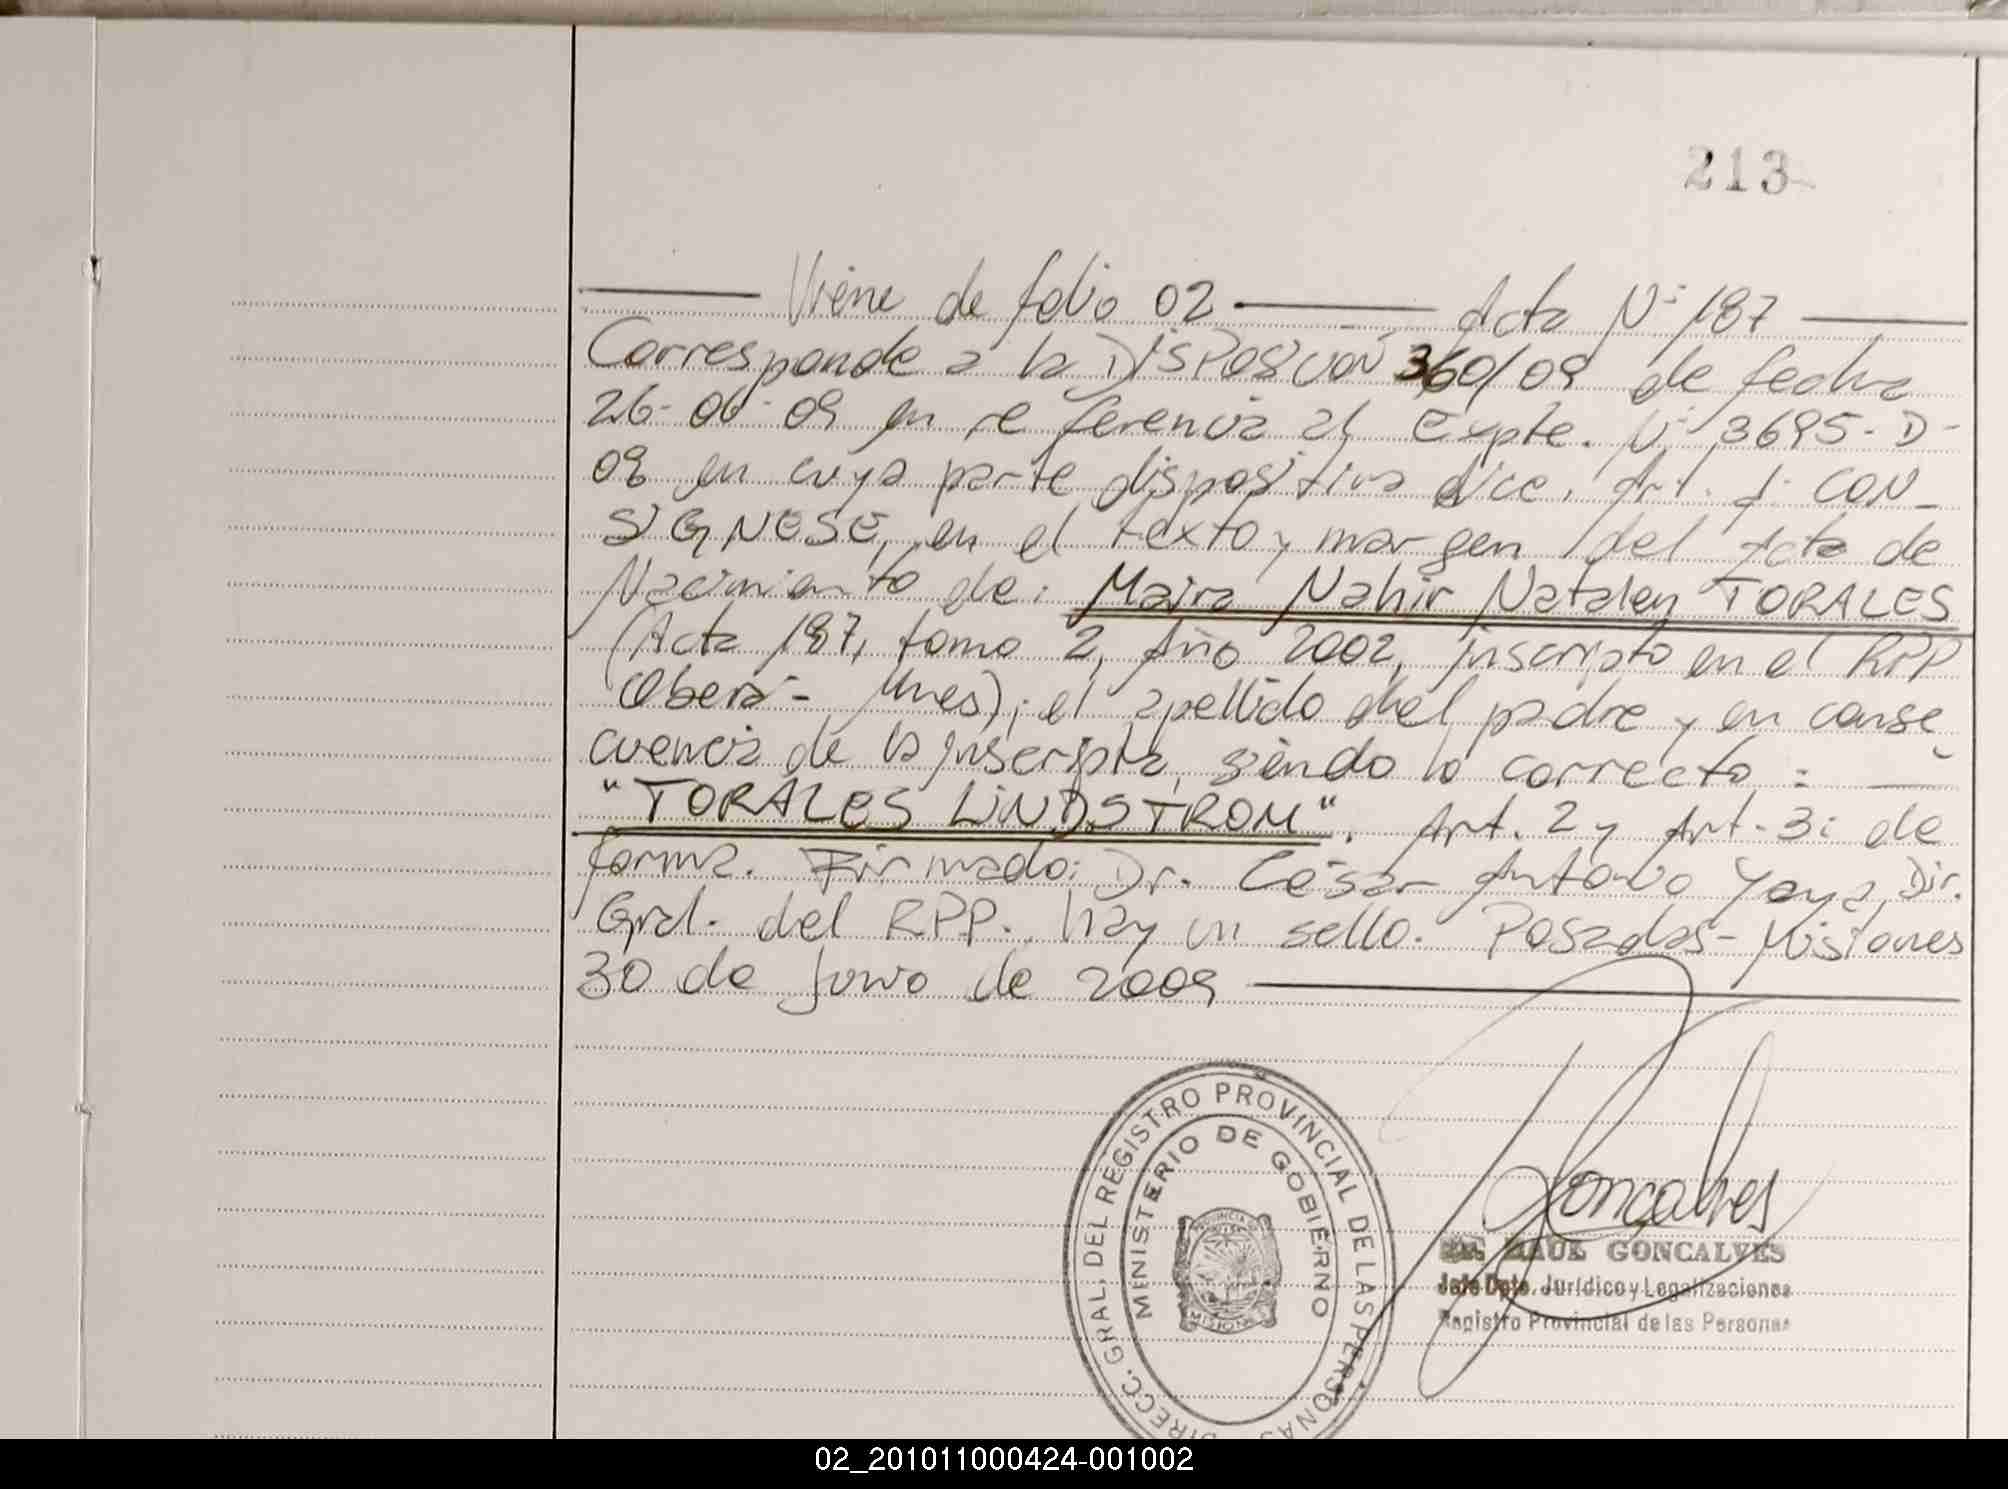 213
Viene de folio 02 Acta N: 187
Corresponde a la DISPOSICIÓN 360/09 de fecha
26-06-09 en referencia al Expte. N: 3695-D-
09 en cuya parte dispositiva dice, Art. 1: CON_
SIGNESE, en el texto y margen del Acta de
Nacimiento de: Maira Nahir Natalen TORALES
(Acta 187, tomo 2, Año 2002, inscripto en el RPP
Oberá - Mnes); el apellido del padre y en conse_
cuencia de la inscripta, siendo lo correcto:
"TORALES LINDSTROM". Art. 2 y Art. 3: de
forma. Firmado: Dr. César Antonio Yaya, Dir.
Gral. del RPP. hay un sello. Posadas-Misiones
30 de Junio de 2009
Goncalves
DIRECC. GRAL. DEL REGISTRO PROVINCIAL DE LAS PERSONAS
MINISTERIO DE GOBIERNO
PROVINCIA DE
MISIONES
RAUL GONCALVES
Jefe Dpto. Jurídico y Legalizaciones
Registro Provincial de las Personas
02_201011000424-001002